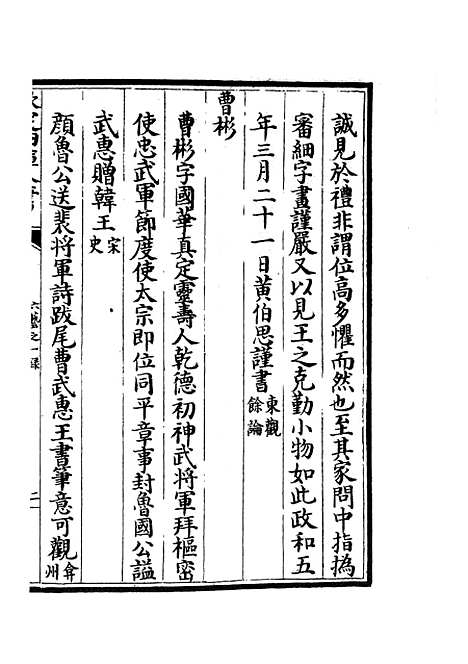 誠見於禮非謂位高多懼而然也至其家問中指撝
審細字畫謹嚴又以見王之克勤小物如此政和五
年三月二十一日黄伯思謹書東觀餘論
曹彬
曹彬字國華真定靈壽人乾德初神武將軍拜樞密
使忠武軍節度使太宗即位同平章事封魯國公謚
武惠贈韓王宋史
顔魯公送裴將軍詩跋尾曹武惠王書筆意可觀弇州
六藝之一錄